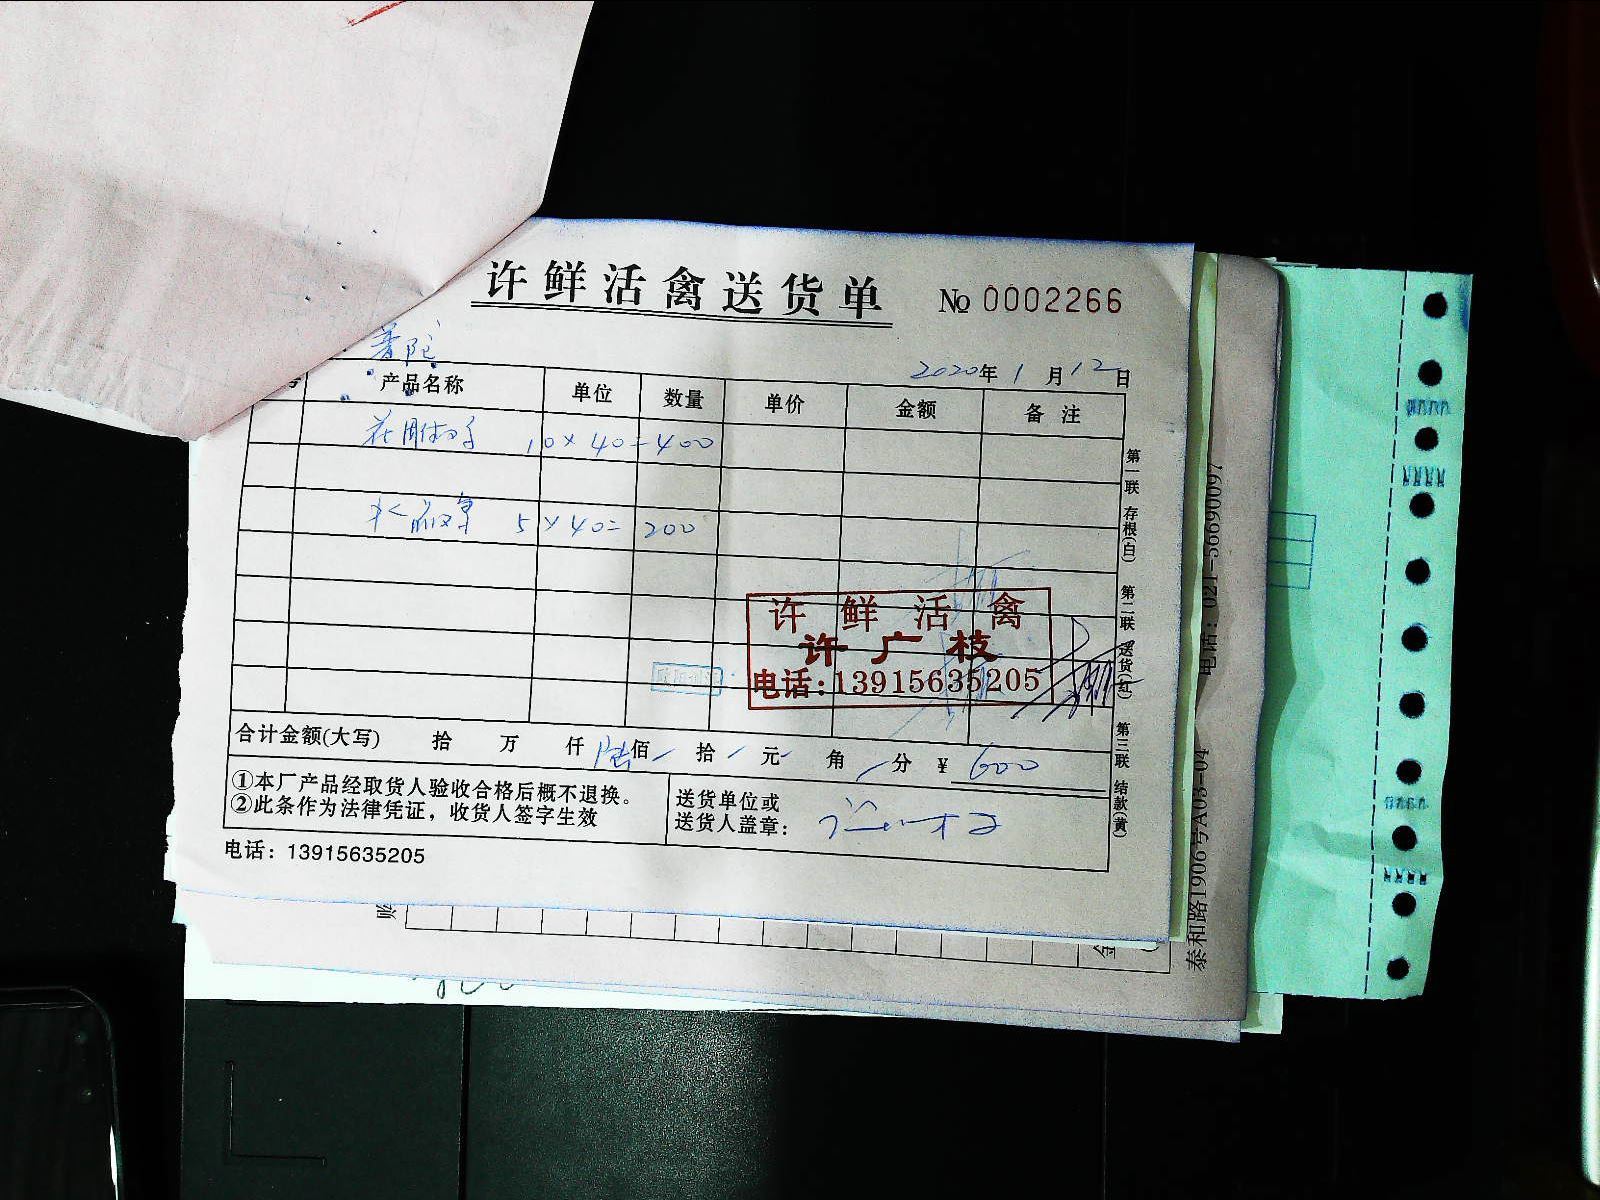 许鲜活禽送货单
№ 0002266
普陀
2020年 1 月 12 日
产品名称 单位 数量 单价 金额 备注
10×40=400
5×40=200
许鲜活禽
许广枝
电话:13915635205
合计金额(大写) 拾 万 仟 陆佰 拾 元 角 分 ¥ 600
①本厂产品经取货人验收合格后概不退换。
②此条作为法律凭证，收货人签字生效
送货单位或
送货人盖章:
电话: 13915635205
第一联 存根(白)
第二联 送货(红)
第三联 结款(黄)
电话: 021-56690097
泰和路1906号A03-04